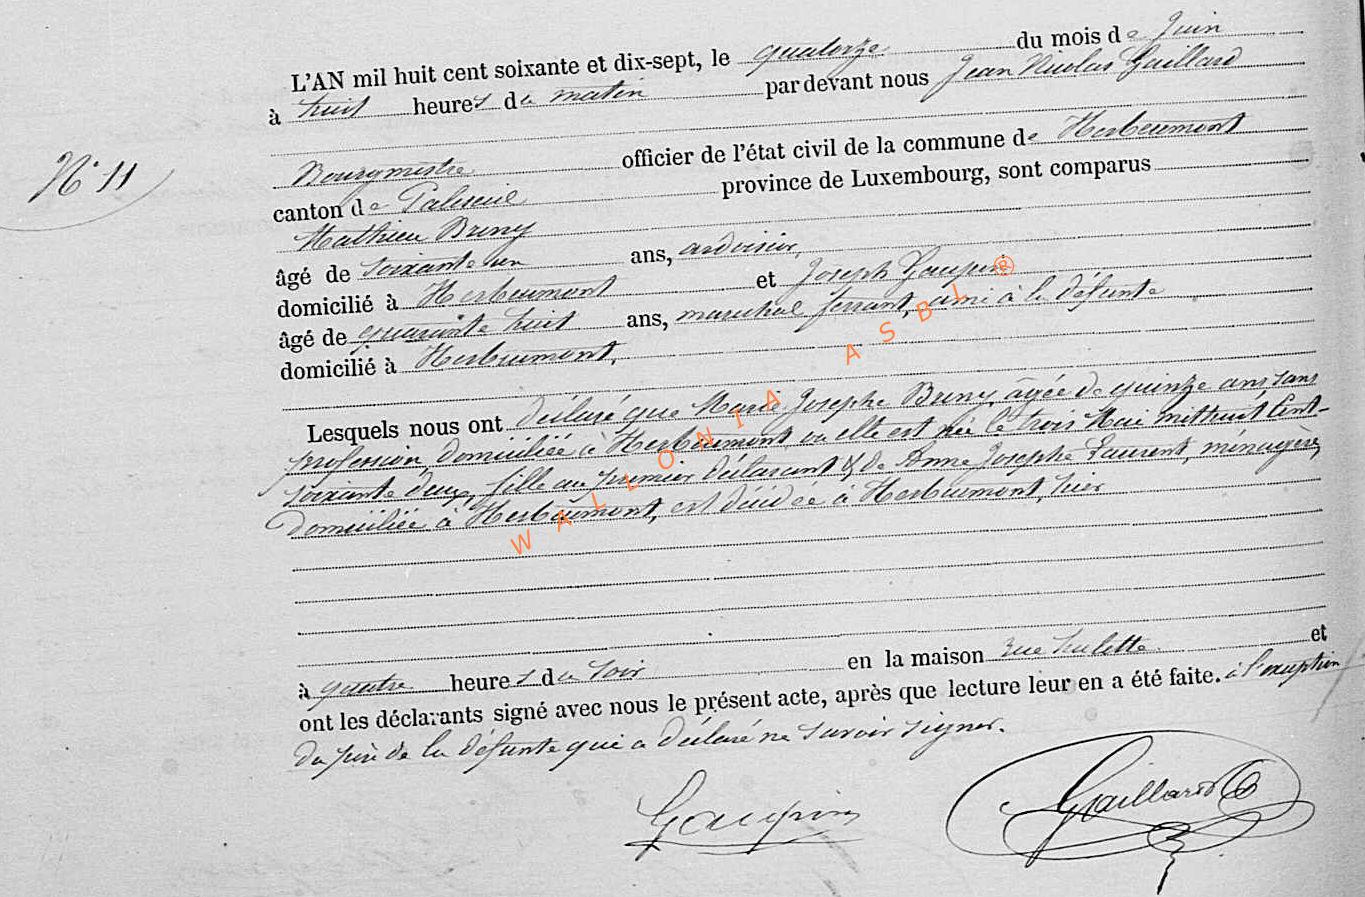 L'AN mil huit cent soixante et dix-sept, le quatorze du mois de Juin
à huit heures du matin par devant nous Jean Nicolas Gaillard
N° 11
Bourgmestre officier de l'état civil de la commune de Herbeumont
canton de Paliseul province de Luxembourg, sont comparus
Mathieu Briny
âgé de soixante un ans, ardoisier,
domicilié à Herbeumont et Joseph Goupin
âgé de quarante huit ans, marechal ferrant, ami à la défunte
domicilié à Herbeumont,
Lesquels nous ont déclaré que Marie Josephe Briny, âgée de quinze ans sans
profession, domiciliée à Herbeumont où elle est née le trois Mai mil huit Cent-
soixante deux, fille au premier déclarant & de Anne Josephe Laurent, ménagère,
domiciliée à Herbeumont, est décédée à Herbeumont, hier
à quatre heures du soir en la maison rue et
ont les déclarants signé avec nous le présent acte, après que lecture leur en a été faite. à l'exception
du père de la défunte qui a déclaré ne savoir signer.
Goupin Gaillard
WALLONIA ASBL ®